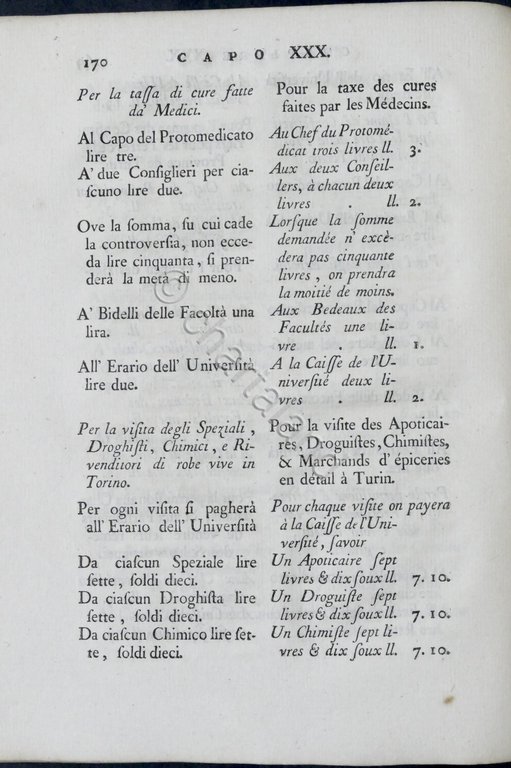 170 CAPO XXX.
Per la taſſa di cure fatte
da' Medici.
Al Capo del Protomedicato
lire tre.
A' due Conſiglieri per cia-
ſcuno lire due.
Ove la ſomma, ſu cui cade
la controverſia, non ecce-
da lire cinquanta, ſi pren-
derà la metà di meno.
A' Bidelli delle Facoltà una
lira.
All' Erario dell' Univerſità
lire due.
Per la viſita degli Speziali,
Droghiſti, Chimici, e Ri-
venditori di robe vive in
Torino.
Per ogni viſita ſi pagherà
all' Erario dell' Univerſità
Da ciaſcun Speziale lire
ſette, ſoldi dieci.
Da ciaſcun Droghiſta lire
ſette, ſoldi dieci.
Da ciaſcun Chimico lire ſet-
te, ſoldi dieci.
Pour la taxe des cures
faites par les Médecins.
Au Chef du Protomé-
dicat trois livres ll. 3.
Aux deux Conſeil-
lers, à chacun deux
livres . ll. 2.
Lorſque la ſomme
demandée n' excè-
dera pas cinquante
livres, on prendra
la moitié de moins.
Aux Bedeaux des
Facultés une li-
vre . ll. 1.
A la Caiſſe de l'U-
niverſité deux li-
vres . ll. 2.
Pour la viſite des Apoticai-
res, Droguiſtes, Chimiſtes,
& Marchands d' épiceries
en détail à Turin.
Pour chaque viſite on payera
à la Caiſſe de l'Uni-
verſité, ſavoir
Un Apoticaire ſept
livres & dix ſoux ll. 7. 10.
Un Droguiſte ſept
livres & dix ſoux ll. 7. 10.
Un Chimiſte ſept li-
vres & dix ſoux ll. 7. 10.